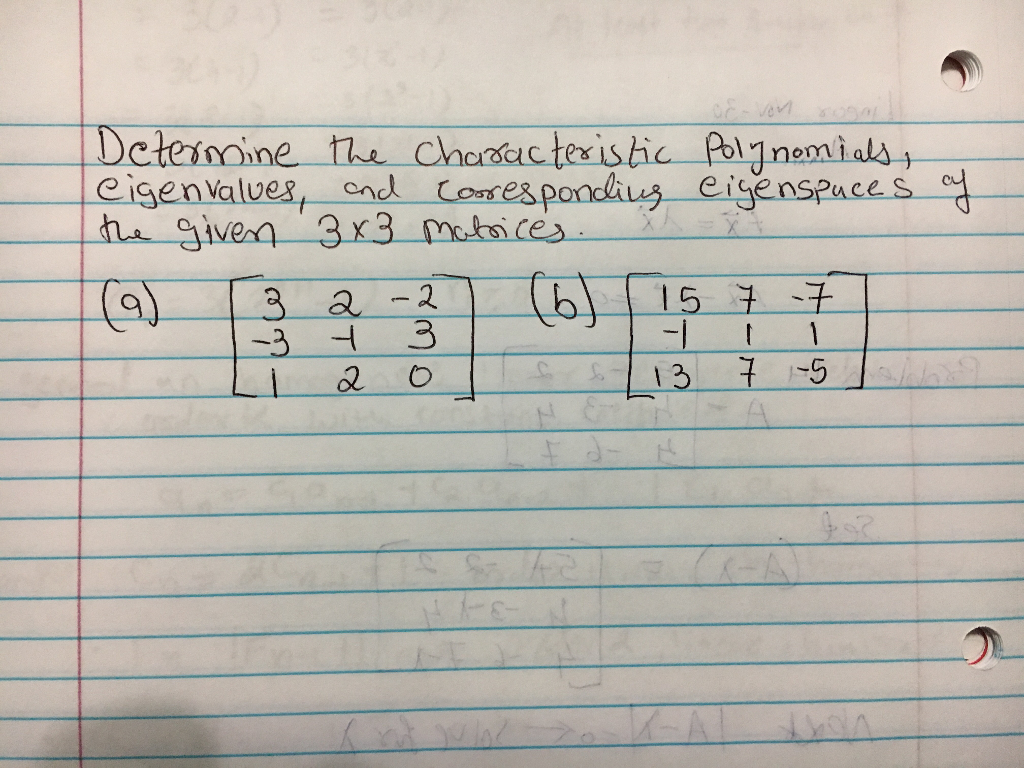 Determine the characteristic Polynomials,
eigenvalues, and corresponding eigenspaces of
the given 3x3 matrices.
(a) [ 3 2 -2 (b) [ 15 7 -7
-3 -1 3 -1 1 1
1 2 0 ] 13 7 -5 ]